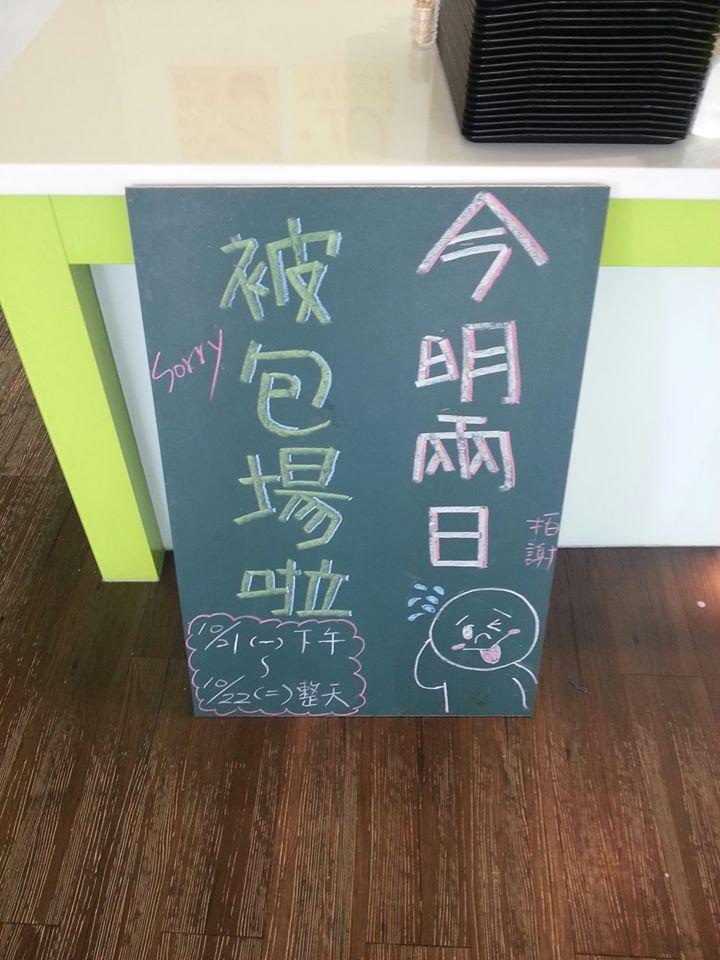 今明兩日
被包場啦
拍謝
Sorry
10/21(一)下午
~
10/22(二)整天